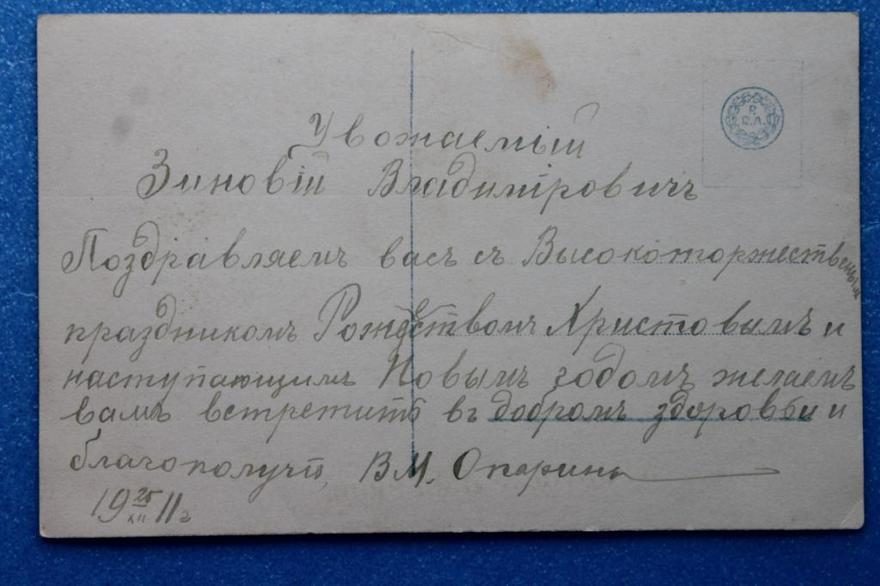 Уважаемiй
Зиновiй Владимiровичъ
Поздравляемъ васъ съ Высокоторжественым
праздникомъ Рождествомъ Христовымъ и
наступающимъ Новымъ годомъ желаемъ
вамъ встретить въ добромъ здоровьи и
благополучiѣ, В М. Опаринъ
19 25/XII 11 г